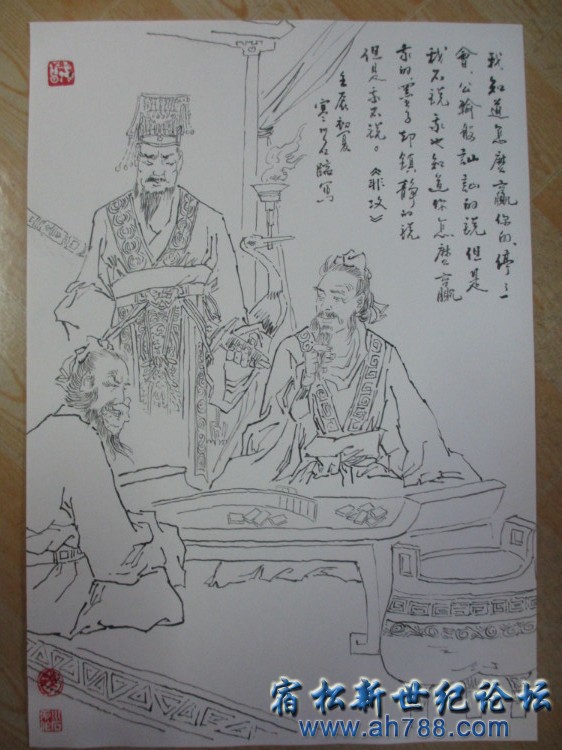 我知道怎麽贏你的，停了一
會，公输般訕訕的说。但是
我不说。我也知道你怎麽贏
我的，墨子却镇静的说
但是我不说。《非攻》
壬辰初夏
寒石临写
宿松新世纪论坛
www.ah788.com